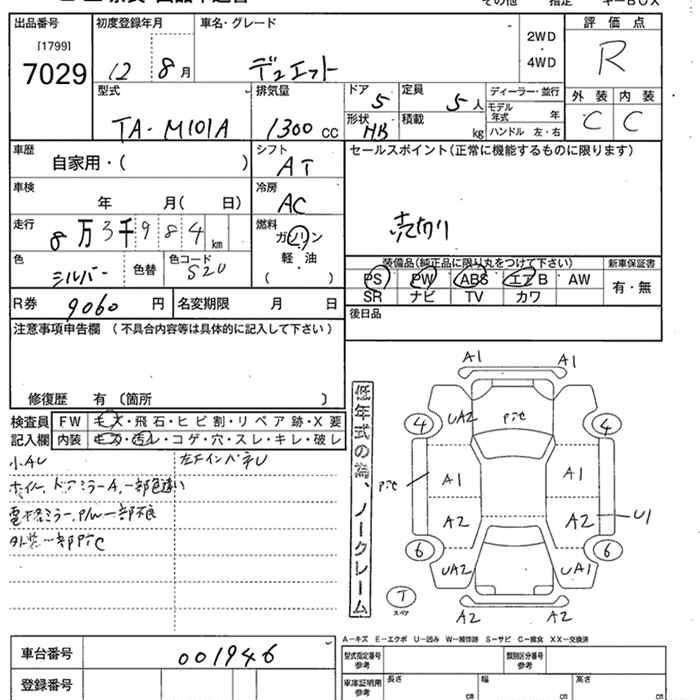 出品番号
[1799]
7029
初度登録年月
12 8月
車名・グレード
デュエット
2WD
・
4WD
評価点
R
外装 内装
C C
型式
TA-M101A
排気量
1300 CC
ドア 5
形状 HB
定員 5人
積載 kg
ディーラー・並行
モデル年式 年
ハンドル 左・右
車歴
自家用・( )
シフト
AT
セールスポイント(正常に機能するものに限ります)
売切り
車検
年 月( 日)
冷房
AC
走行
8万3千984km
燃料
ガソリン
軽・油
( )
色
シルバー
色替
色コード
S20
装備品(純正品に限り丸をつけて下さい)
PS PW ABS エアB AW
SR ナビ TV カワ
新車保証書
有・無
R券 9060 円
名変期限 月 日
後日品
注意事項申告欄 (不具合内容等は具体的に記入して下さい)
修復歴 有 〔箇所 〕
検査員記入欄
FW 毛大・飛石・ヒビ割・リペア跡・X要
内装 ・汚レ・コゲ・穴・スレ・キレ・破レ
小AU
左FインパネU
ホイル、ドアミラーA、一部色違い
電格ミラー、P/W一部不良
外装一部PTC
低年式の為、ノークレーム
A1 A1
UA2 PTC
4 4
PTC A1 A1
A2 A2 U1
6 6
UA2 UA1
T
スペア
A2 A2
A-キズ E-エクボ U-凹み W-補修跡 S-サビ C-腐食 XX-交換済
車台番号 001946
登録番号
型式指定番号
参考
類別区分番号
参考
車庫証明用
参考
長さ cm
幅 cm
高さ cm